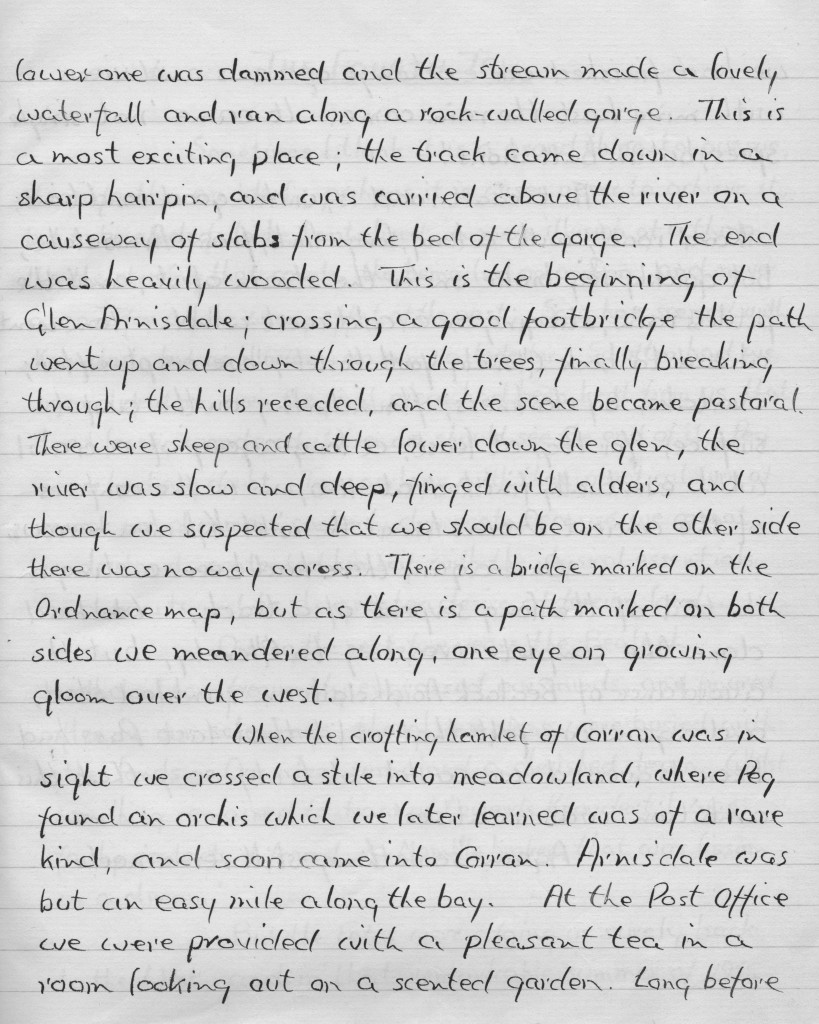 lower one was dammed and the stream made a lovely
waterfall and ran along a rock-walled gorge. This is
a most exciting place; the track came down in a
sharp hairpin, and was carried above the river on a
causeway of slabs from the bed of the gorge. The end
was heavily wooded. This is the beginning of
Glen Arnisdale; crossing a good footbridge the path
went up and down through the trees, finally breaking
through; the hills receded, and the scene became pastoral.
There were sheep and cattle lower down the glen, the
river was slow and deep, fringed with alders, and
though we suspected that we should be on the other side
there was no way across. There is a bridge marked on the
Ordnance map, but as there is a path marked on both
sides we meandered along, one eye on growing
gloom over the west.
When the crofting hamlet of Corran was in
sight we crossed a stile into meadowland, where Peg
found an orchis which we later learned was of a rare
kind, and soon came into Corran. Arnisdale was
but an easy mile along the bay. At the Post Office
we were provided with a pleasant tea in a
room looking out on a scented garden. Long before